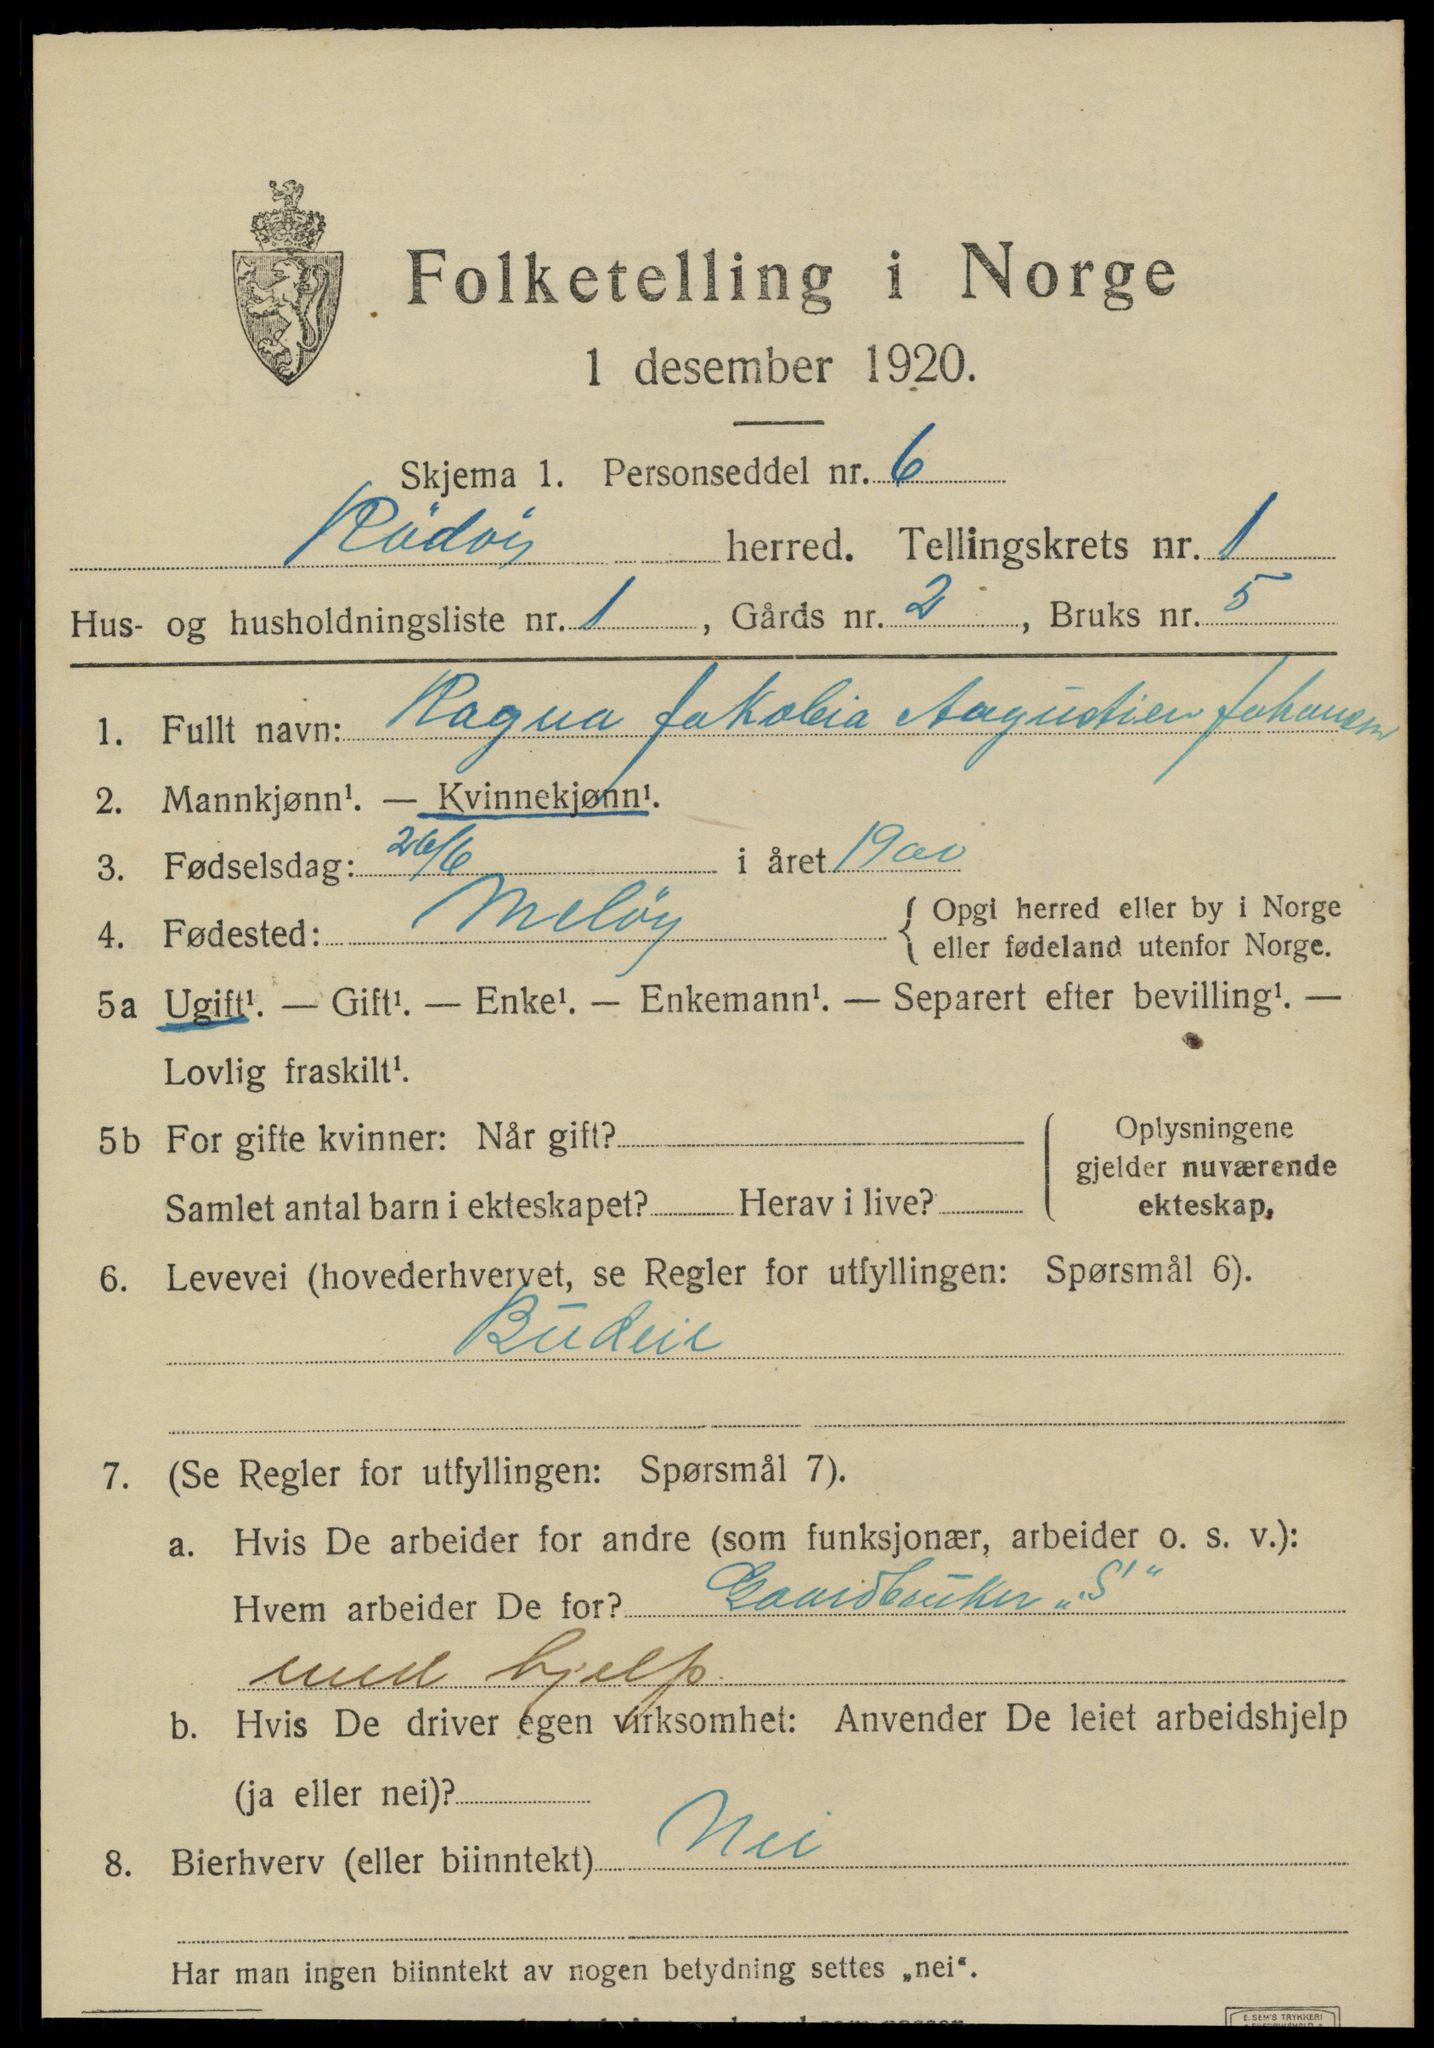 Folketelling i Norge
1 desember 1920.
Skjema 1. Personseddel nr. 6
Rödöy herred. Tellingskrets nr. 1
Hus- og husholdningsliste nr. 1, Gårds nr. 2, Bruks nr. 5
1. Fullt navn: Ragna Jakobia Augustien Johansen
2. Mannkjønn¹. — Kvinnekjønn¹.
3. Fødselsdag: 26/6 i året 1900
4. Fødested: Melöy { Opgi herred eller by i Norge
eller fødeland utenfor Norge.
5a Ugift¹. — Gift¹. — Enke¹. — Enkemann¹. — Separert efter bevilling¹. —
Lovlig fraskilt¹.
5b For gifte kvinner: Når gift?
Samlet antal barn i ekteskapet? Herav i live?
Oplysningene
gjelder nuværende
ekteskap.
6. Levevei (hovederhvervet, se Regler for utfyllingen: Spørsmål 6).
Budeie
7. (Se Regler for utfyllingen: Spørsmål 7).
a. Hvis De arbeider for andre (som funksjonær, arbeider o. s. v.):
Hvem arbeider De for? Gaardbruker „S"
med hjelp
b. Hvis De driver egen virksomhet: Anvender De leiet arbeidshjelp
(ja eller nei)?
8. Bierhverv (eller biinntekt) Nei
Har man ingen biinntekt av nogen betydning settes „nei“.
E. SEM'S TRYKKERI